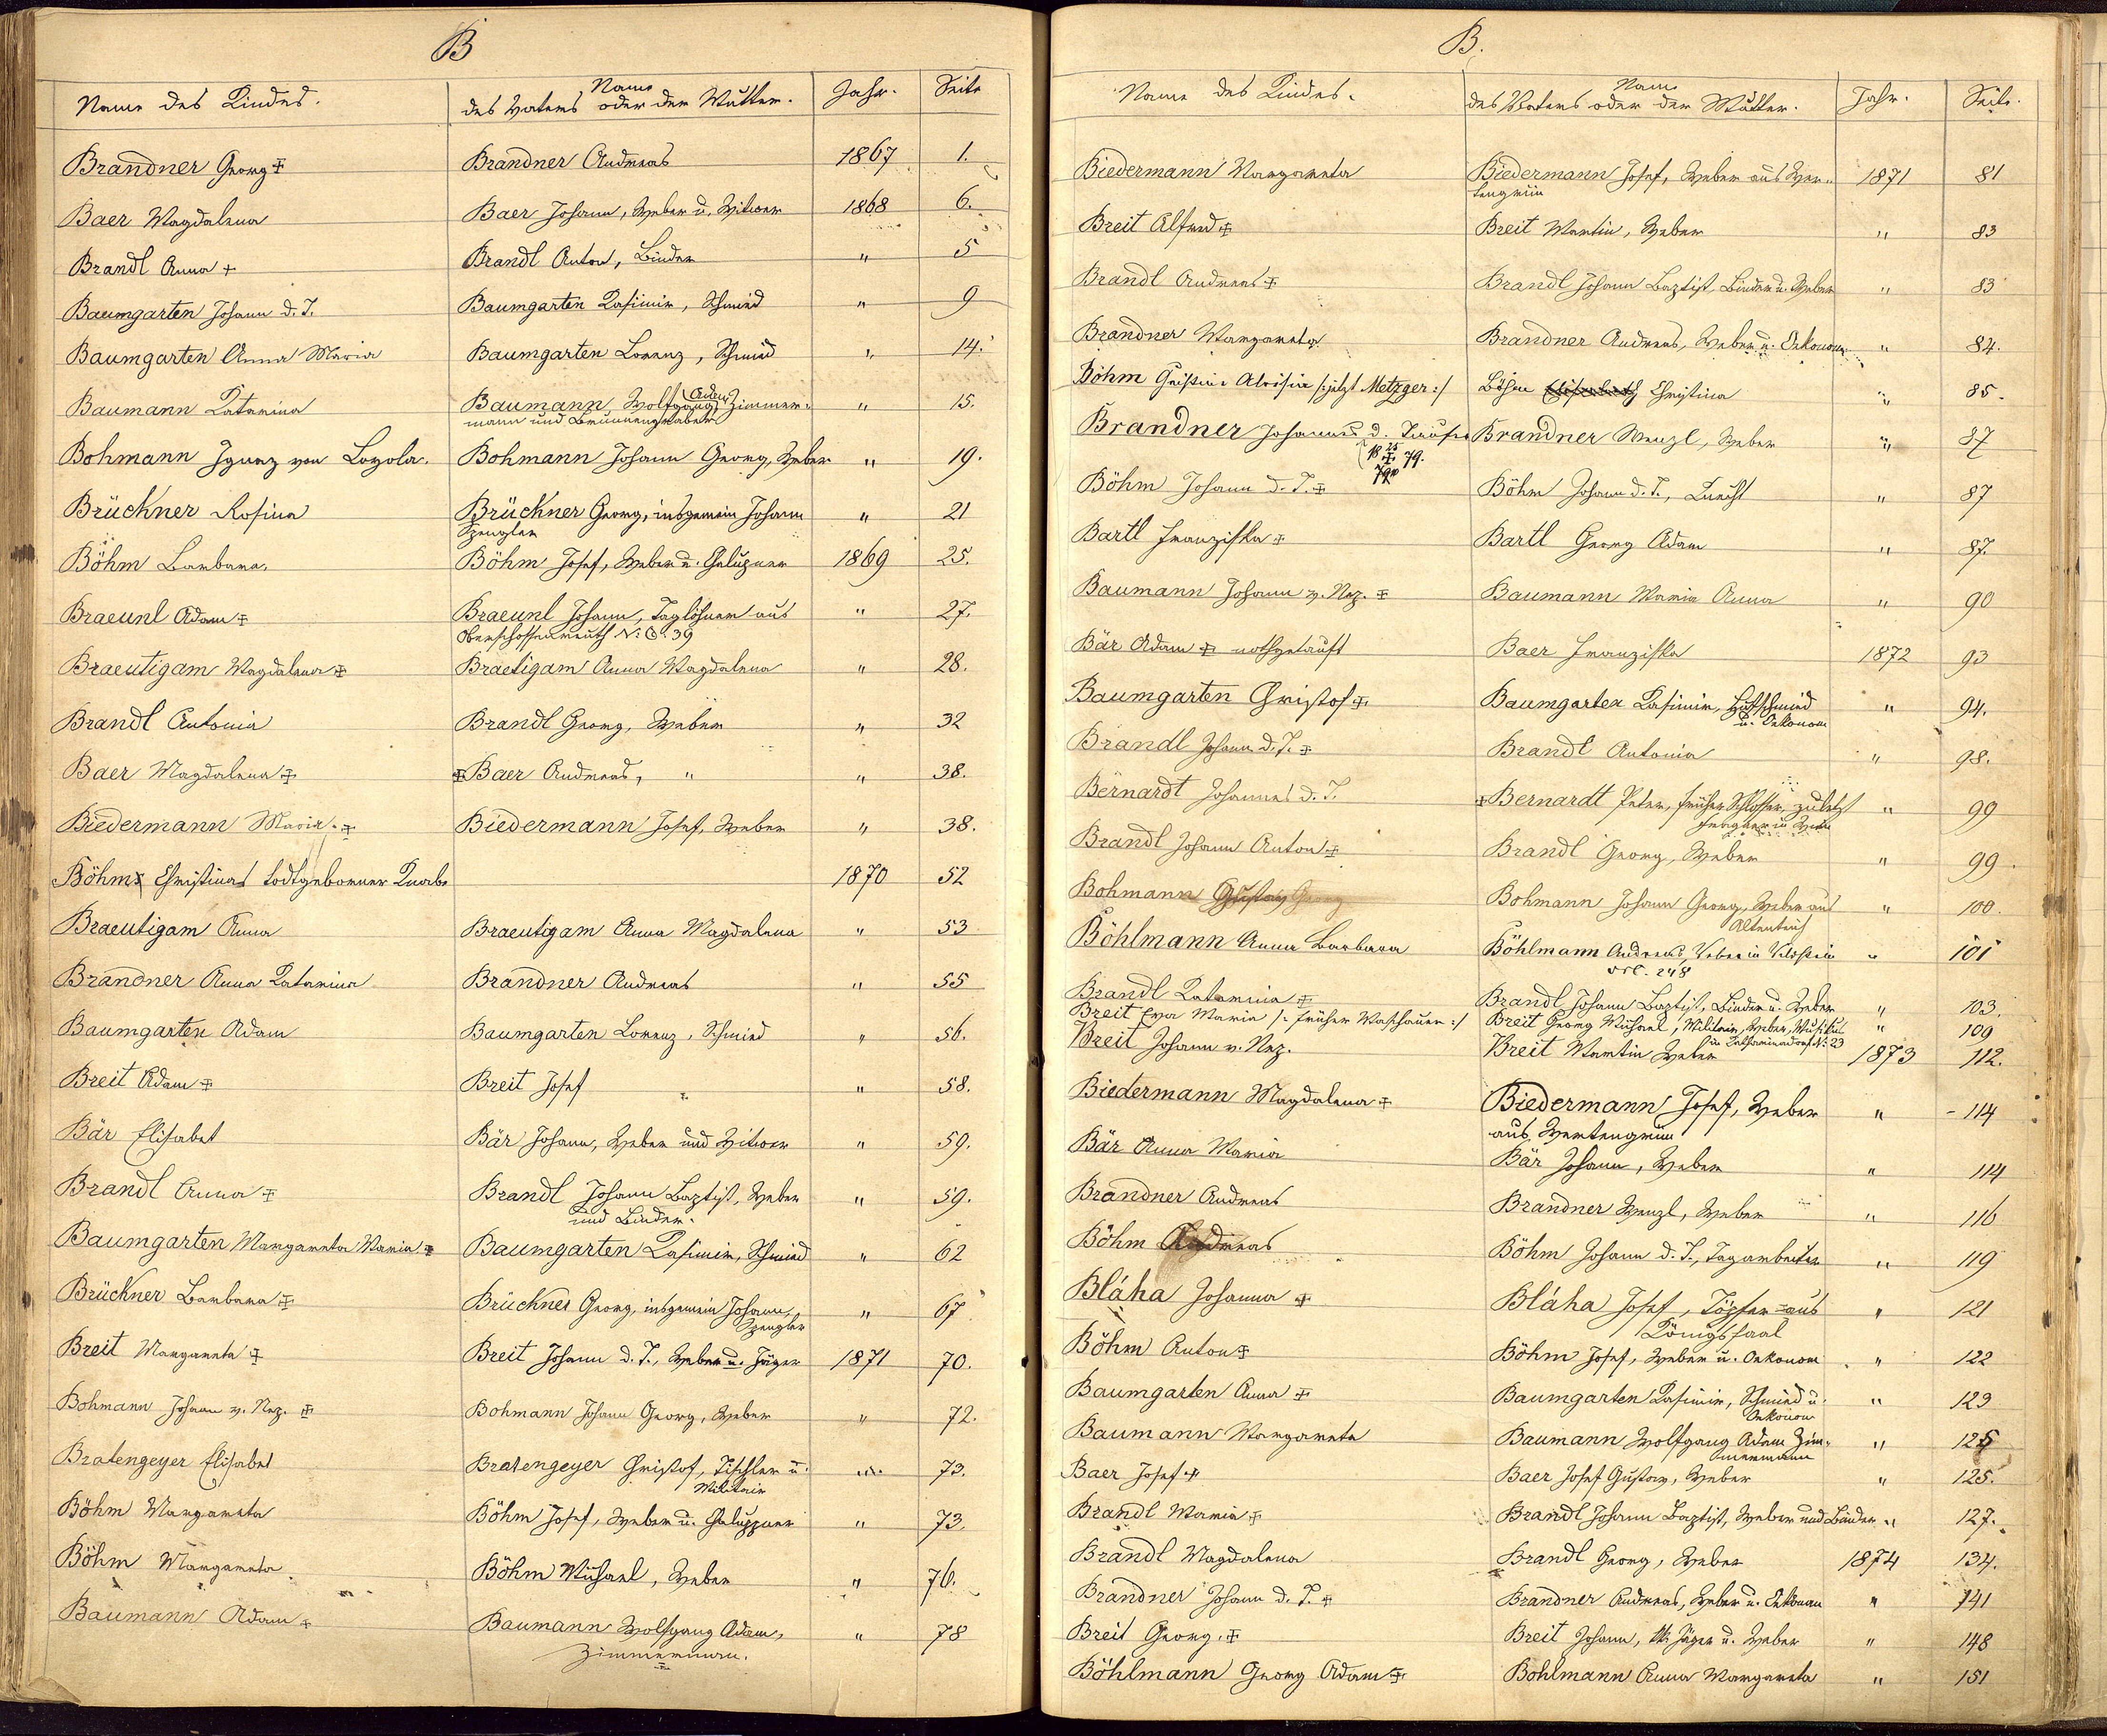 B
Name des Kindes.
Name
des Vaters oder der Mutter.
Jahr.
Seite
Brandner Georg ‡ Brandner Andreas 1867 1.
Baer Magdalena Baer Johann, Weber u. Witwer 1868 6.
Brandl Anna + Brandl Anton, Binder " 5
Baumgarten Johann d. T. Baumgarten Kasimir, Schmied " 9
Baumgarten Anna Maria Baumgarten Lorenz, Schmied " 14.
Baumann Katarina Baumann Wolfgang Adam Zimmer- " 15.
mann und Brunnengraber
Bohmann Ignaz von Loyola. Bohmann Johann Georg, Weber " 19.
Brückner Rosina Brückner Georg, insgemein Johann " 21
Spengler
Böhm Barbara. Böhm Josef, Weber u. Chalupner 1869 25.
Braeunl Adam ‡ Braeunl Johann, Taglöhner aus " 27.
Oberschossenreuth N: C. 39
Braeutigam Magdalena ‡ Braetigam Anna Magdalena " 28.
Brandl Antonia Brandl Georg, Weber " 32
Baer Magdalena ‡ ‡ Baer Andreas, " " 38.
Biedermann Maria. ‡ Biedermann Josef, Weber " 38.
Böhms Christinas todtgeborner Knabe 1870 52
Braeutigam Anna Braeutigam Anna Magdalena " 53
Brandner Anna Katarina Brandner Andreas " 55
Baumgarten Adam Baumgarten Lorenz, Schmied " 56.
Breit Adam ‡ Breit Josef " 58.
Bär Elisabet Bär Johann, Weber und Witwer " 59.
Brandl Anna ‡ Brandl Johann Baptist, Weber " 59.
und Binder.
Baumgarten Margareta Maria ‡ Baumgarten Kasimir, Schmied " 62
Brückner Barbara ‡ Brückner Georg, insgemein Johann, " 67
Spengler
Breit Margareta ‡ Breit Johann d. T., Weber u. Jäger 1871 70.
Bohmann Johann v. Nep. ‡ Bohmann Johann Georg, Weber " 72.
Bratengeyer Elisabet Bratengeyer Christof, Tischler u. " 73.
Militair
Böhm Margareta Böhm Josef, Weber u. Chaluppner " 73.
Böhm Margareta. Böhm Michael, Weber " 76.
Baumann Adam ‡ Baumann Wolfgang Adam, " 78
Zimmermann.
B.
Name des Kindes.
Name
des Vaters oder der Mutter.
Jahr.
Seite.
Biedermann Margareta Biedermann Josef, Weber aus Wer- 1871 81
tengrün
Breit Alfred ‡ Breit Martin, Weber " 83
Brandl Andreas ‡ Brandl Johann Baptist, Binder u. Weber " 83
Brandner Margareta Brandner Andreas, Weber u. Oekonom " 84.
Böhm Christina Aloisia /: jetzt Metzger :/ Böhm Elisabeth Christina " 85.
Brandner Johannes d. Täufer Brandner Wenzl, Weber " 87
Böhm Johann d. T. ‡ Böhm Johann d. T., Knecht " 87
Bartl Franziska ‡ Bartl Georg Adam " 87.
Baumann Johann v. Nep. ‡ Baumann Maria Anna " 90
Bär Adam ‡ nothgetauft Baer Franziska 1872 93
Baumgarten Christof ‡ Baumgarten Kasimir, Hufschmied " 94.
u. Oekonom
Brandl Johann d. T. ‡ Brandl Antonia " 98.
Bernardt Johannes d. T. ‡ Bernardt Peter, früher Schlosser, zuletzt " 99
Brandl Johann Anton ‡ Brandl Georg, Weber " 99.
Bohmann Gustav Georg Bohmann Johann Georg, Weber aus " 100.
Altenteich
Böhlmann Anna Barbara Böhlmann Andreas, Weber in " 101
248
Brandl Katarina ‡ Brandl Johann Baptist, Binder u. Weber " 103.
Breit Eva Maria /: früher Waschauer :/ Breit Georg Michael, Militair, Weber, " 109
in Katharinadorf N: 23
Breit Johann v. Nep. Breit Martin Weber 1873 112.
Biedermann Magdalena ‡ Biedermann Josef, Weber " 114
aus Wertengrün
Bär Anna Maria Bär Johann, Weber " 114
Brandner Andreas Brandner Wenzl, Weber " 116
Böhm Andreas Böhm Johann d. T., Tagarbeiter " 119
Bláha Johanna ‡ Bláha Josef, Töpfer aus " 121
Königssaal
Böhm Anton ‡ Böhm Josef, Weber u. Oekonom " 122
Baumgarten Anna ‡ Baumgarten Kasimir, Schmied u. " 123
Oekonom
Baumann Margareta Baumann Wolfgang Adam Zim- " 125
mermann
Baer Josef ‡ Baer Josef Gustav, Weber " 125.
Brandl Maria ‡ Brandl Johann Baptist, Weber und Binder " 127.
Brandl Magdalena Brandl Georg, Weber 1874 134.
Brandner Johann d. T. ‡ Brandner Andreas, Weber u. Oekonom " 141
Breit Georg. ‡ Breit Johann, k.k. Jäger u. Weber " 148
Böhlmann Georg Adam ‡ Bohlmann Anna Margareta " 151